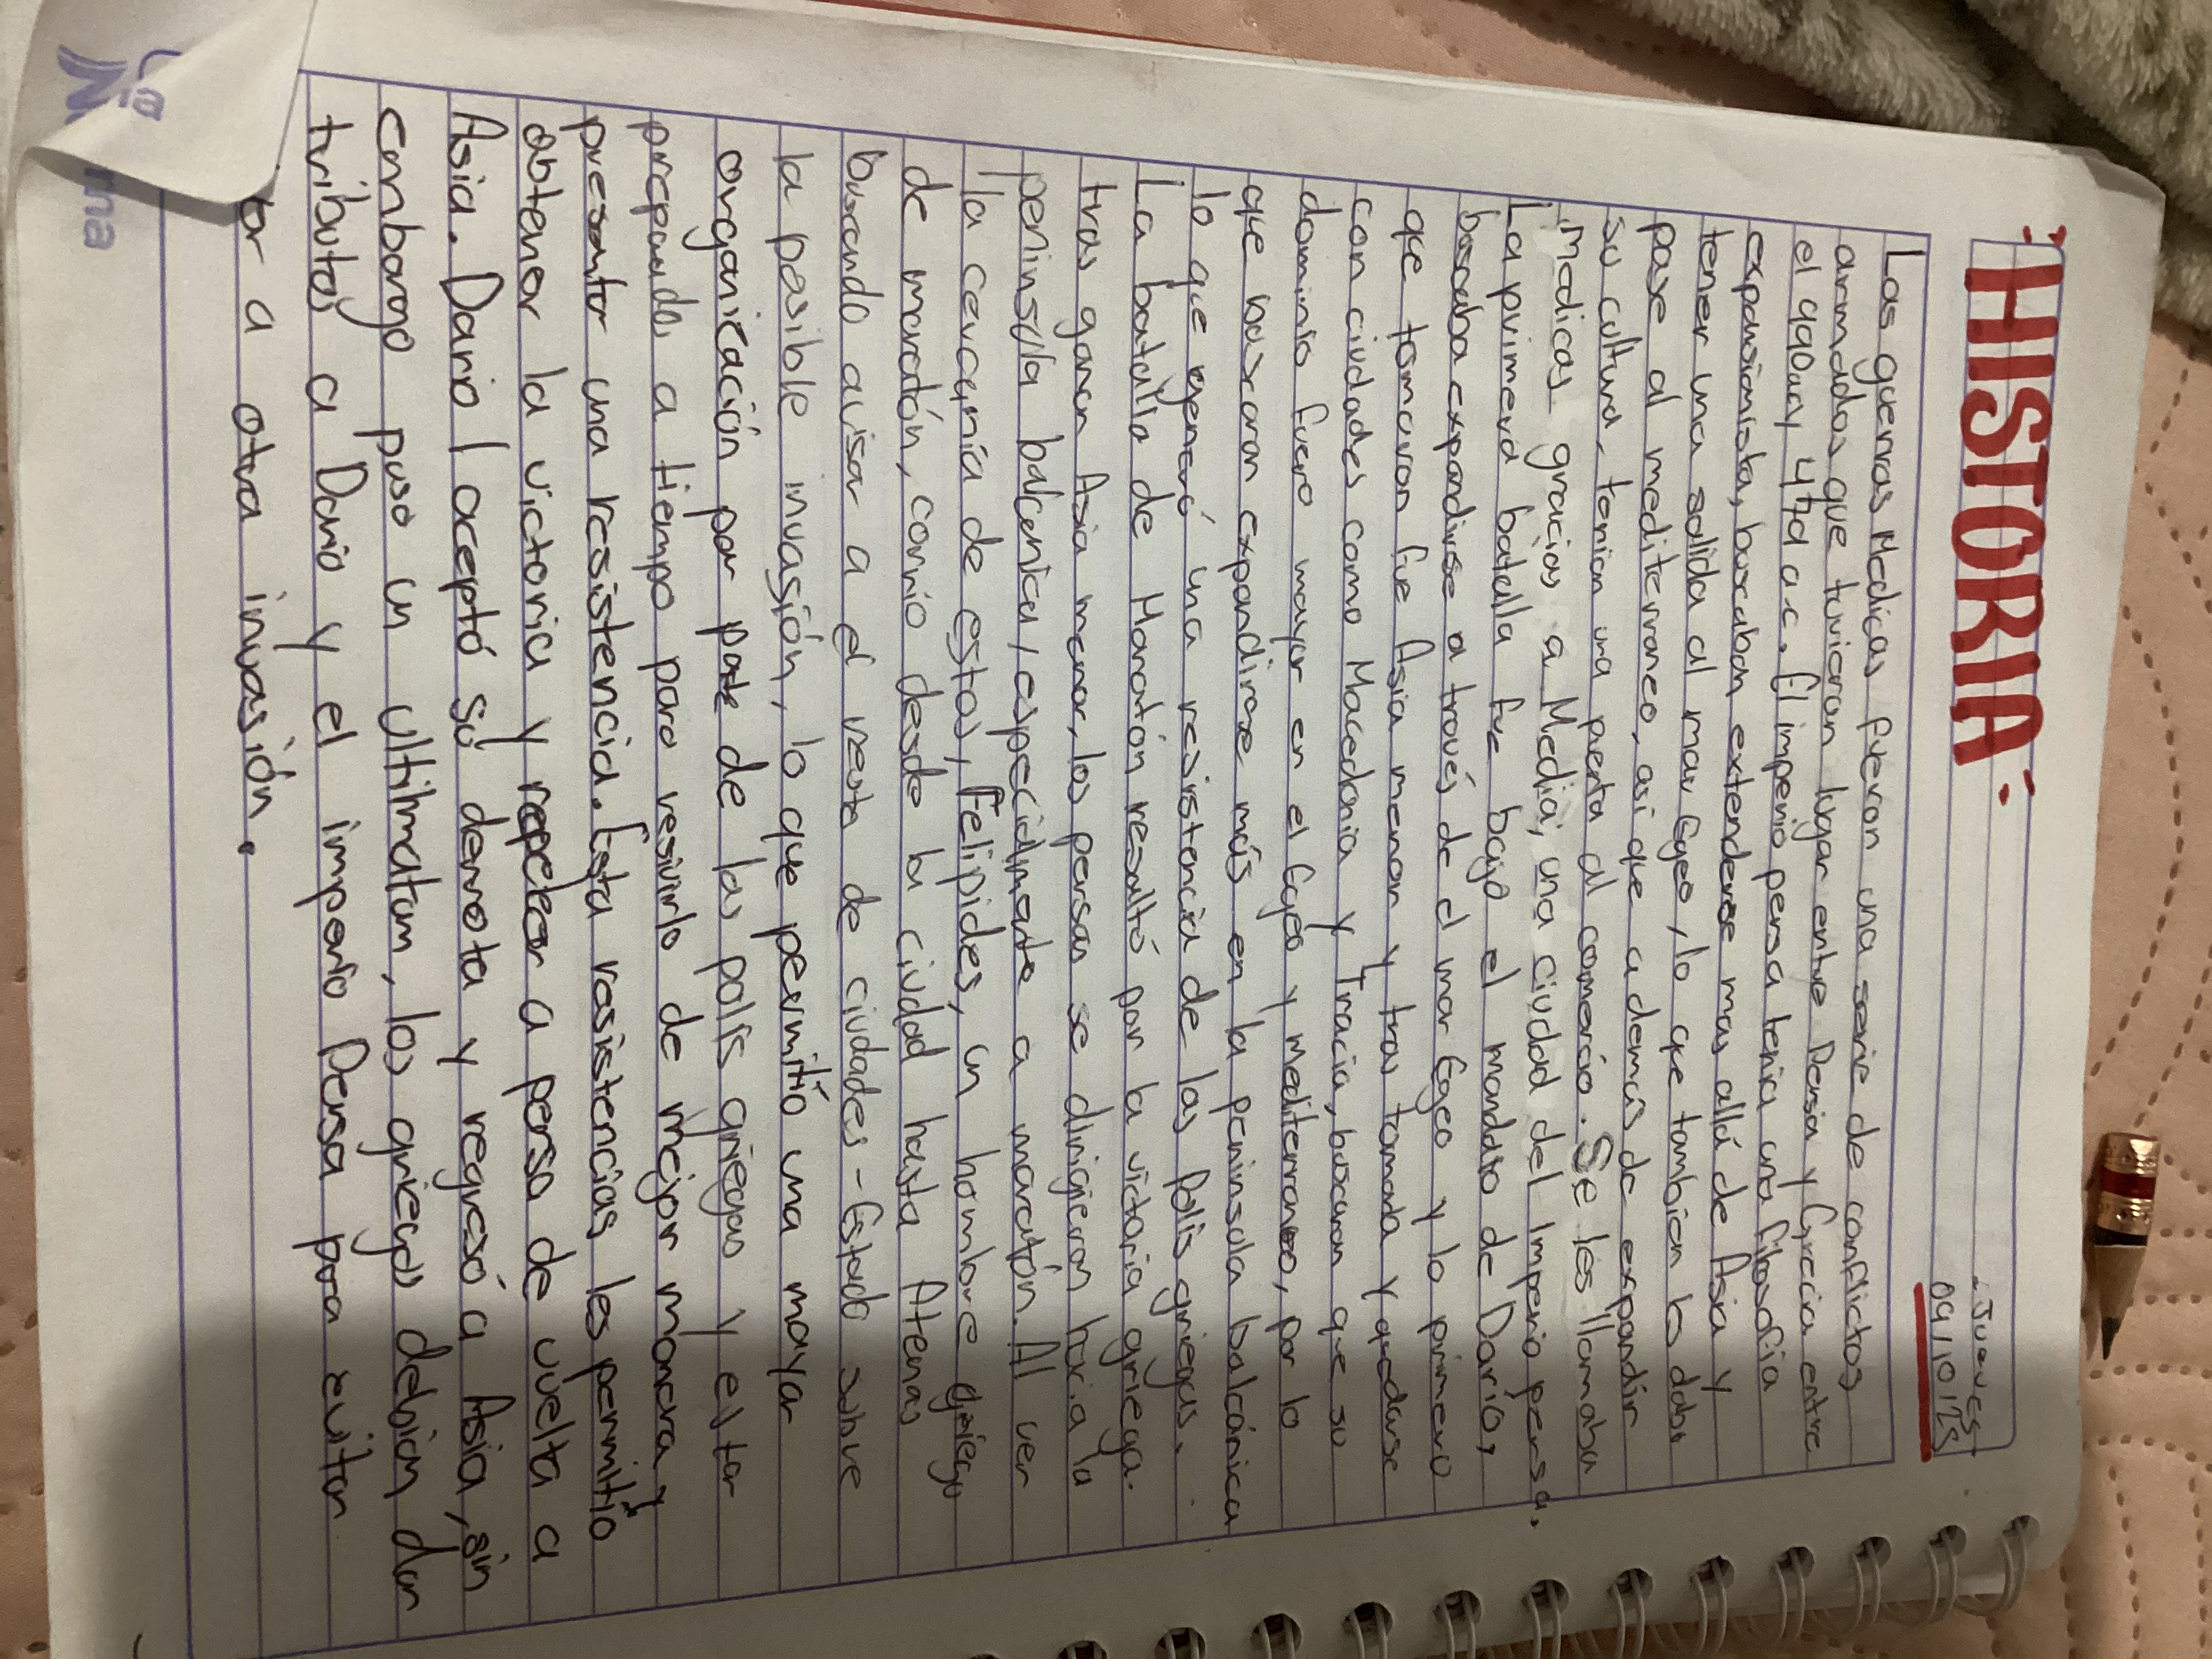 "HISTORIA"
.Jueves
09/10/25
Las guerras Medicas fueron una serie de conflictos
armados que tuvieron lugar entre Persia y Grecia entre
el 490 a.c y 479 a.c. El imperio persa tenia una filosofia
expansionista, buscaban extenderse mas allá de Asia y
tener una salida al mar Egeo, lo que tambien les daba
pase al mediterraneo, asi que ademas de expandir
su cultura, tenian una puerta al comercio. Se les llamaba
Medicas gracias a Media, una ciudad del Imperio persa.
La primera batalla fue bajo el mandato de Darío,
buscaba expandirse a través de el mar Egeo y lo primero
que tomaron fue Asia menor y tras tomarla y quedarse
con ciudades como Macedonia y Tracia, buscaron que su
dominio fuera mayor en el Egeo y Mediterraneo, por lo
que buscaron expandirse más en la peninsula balcánica
lo que generó una resistencia de las Polis griegas.
La batalla de Maratón resultó por la victoria griega.
tras ganar Asia menor, los persas se dirigieron hacia la
peninsula balcanica, especialmente a maratón. Al ver
la cercanía de estos, Felipides, un hombre griego
de maratón, corrió desde la ciudad hasta Atenas
buscando avisar a el resto de ciudades-Estado sobre
la posible invasión, lo que permitió una mayor
organización por parte de las polis griegas y estar
preparados a tiempo para resivirlo de mejor manera y
presentar una resistencia. Esta resistencias les permitió
obtener la victoria y repeler a persa de vuelta a
Asia. Dario I aceptó su derrota y regresó a Asia, sin
embargo puso un ultilmatum, los griegos debian dar
tributos a Dario y el imperio Persa para evitar
a otra invasión.